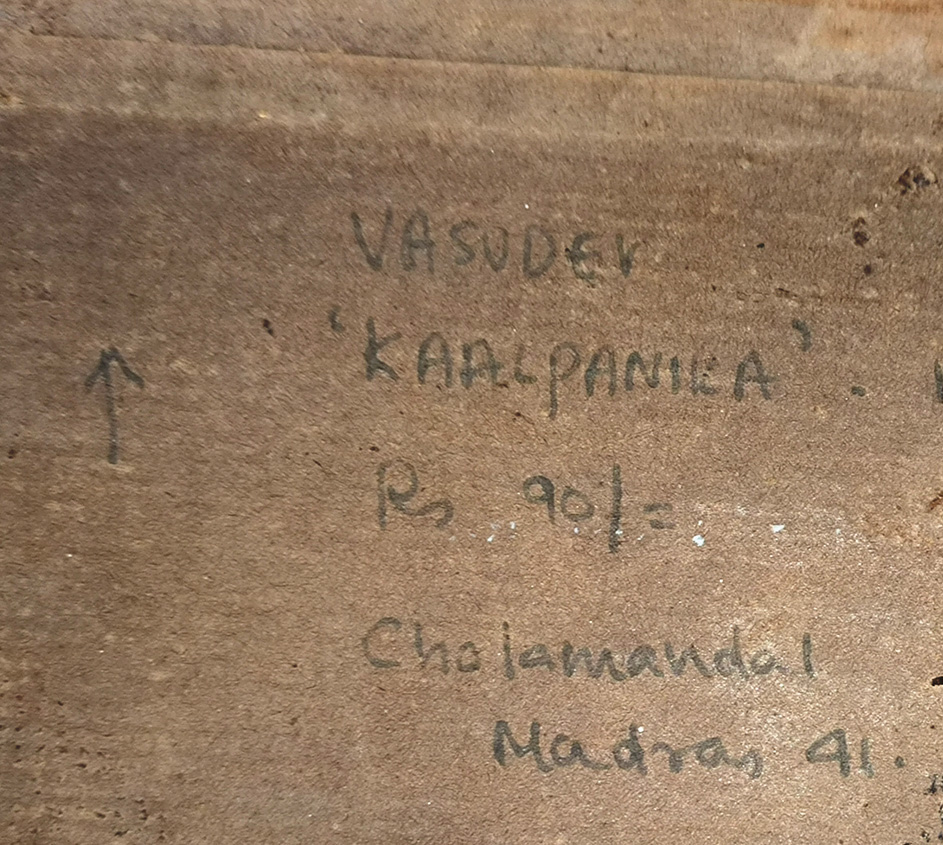 VASUDEV
'KAALPANIKA'.
Rs 90/=
Cholamandal
Madras 41.